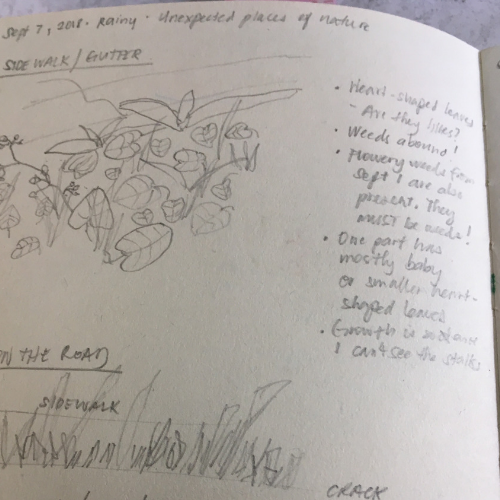 Sept 7, 2018 · Rainy · Unexpected places of nature
SIDEWALK / GUTTER
• Heart-shaped leaves
- Are they lilies?
• Weeds abound!
• Flowery weeds from
Sept 1 are also
present. They
MUST be weeds!
• One part has
mostly baby
or smaller heart-
shaped leaves
• Growth is so dense
I can't see the stalks
ON THE ROAD
SIDEWALK
CRACK